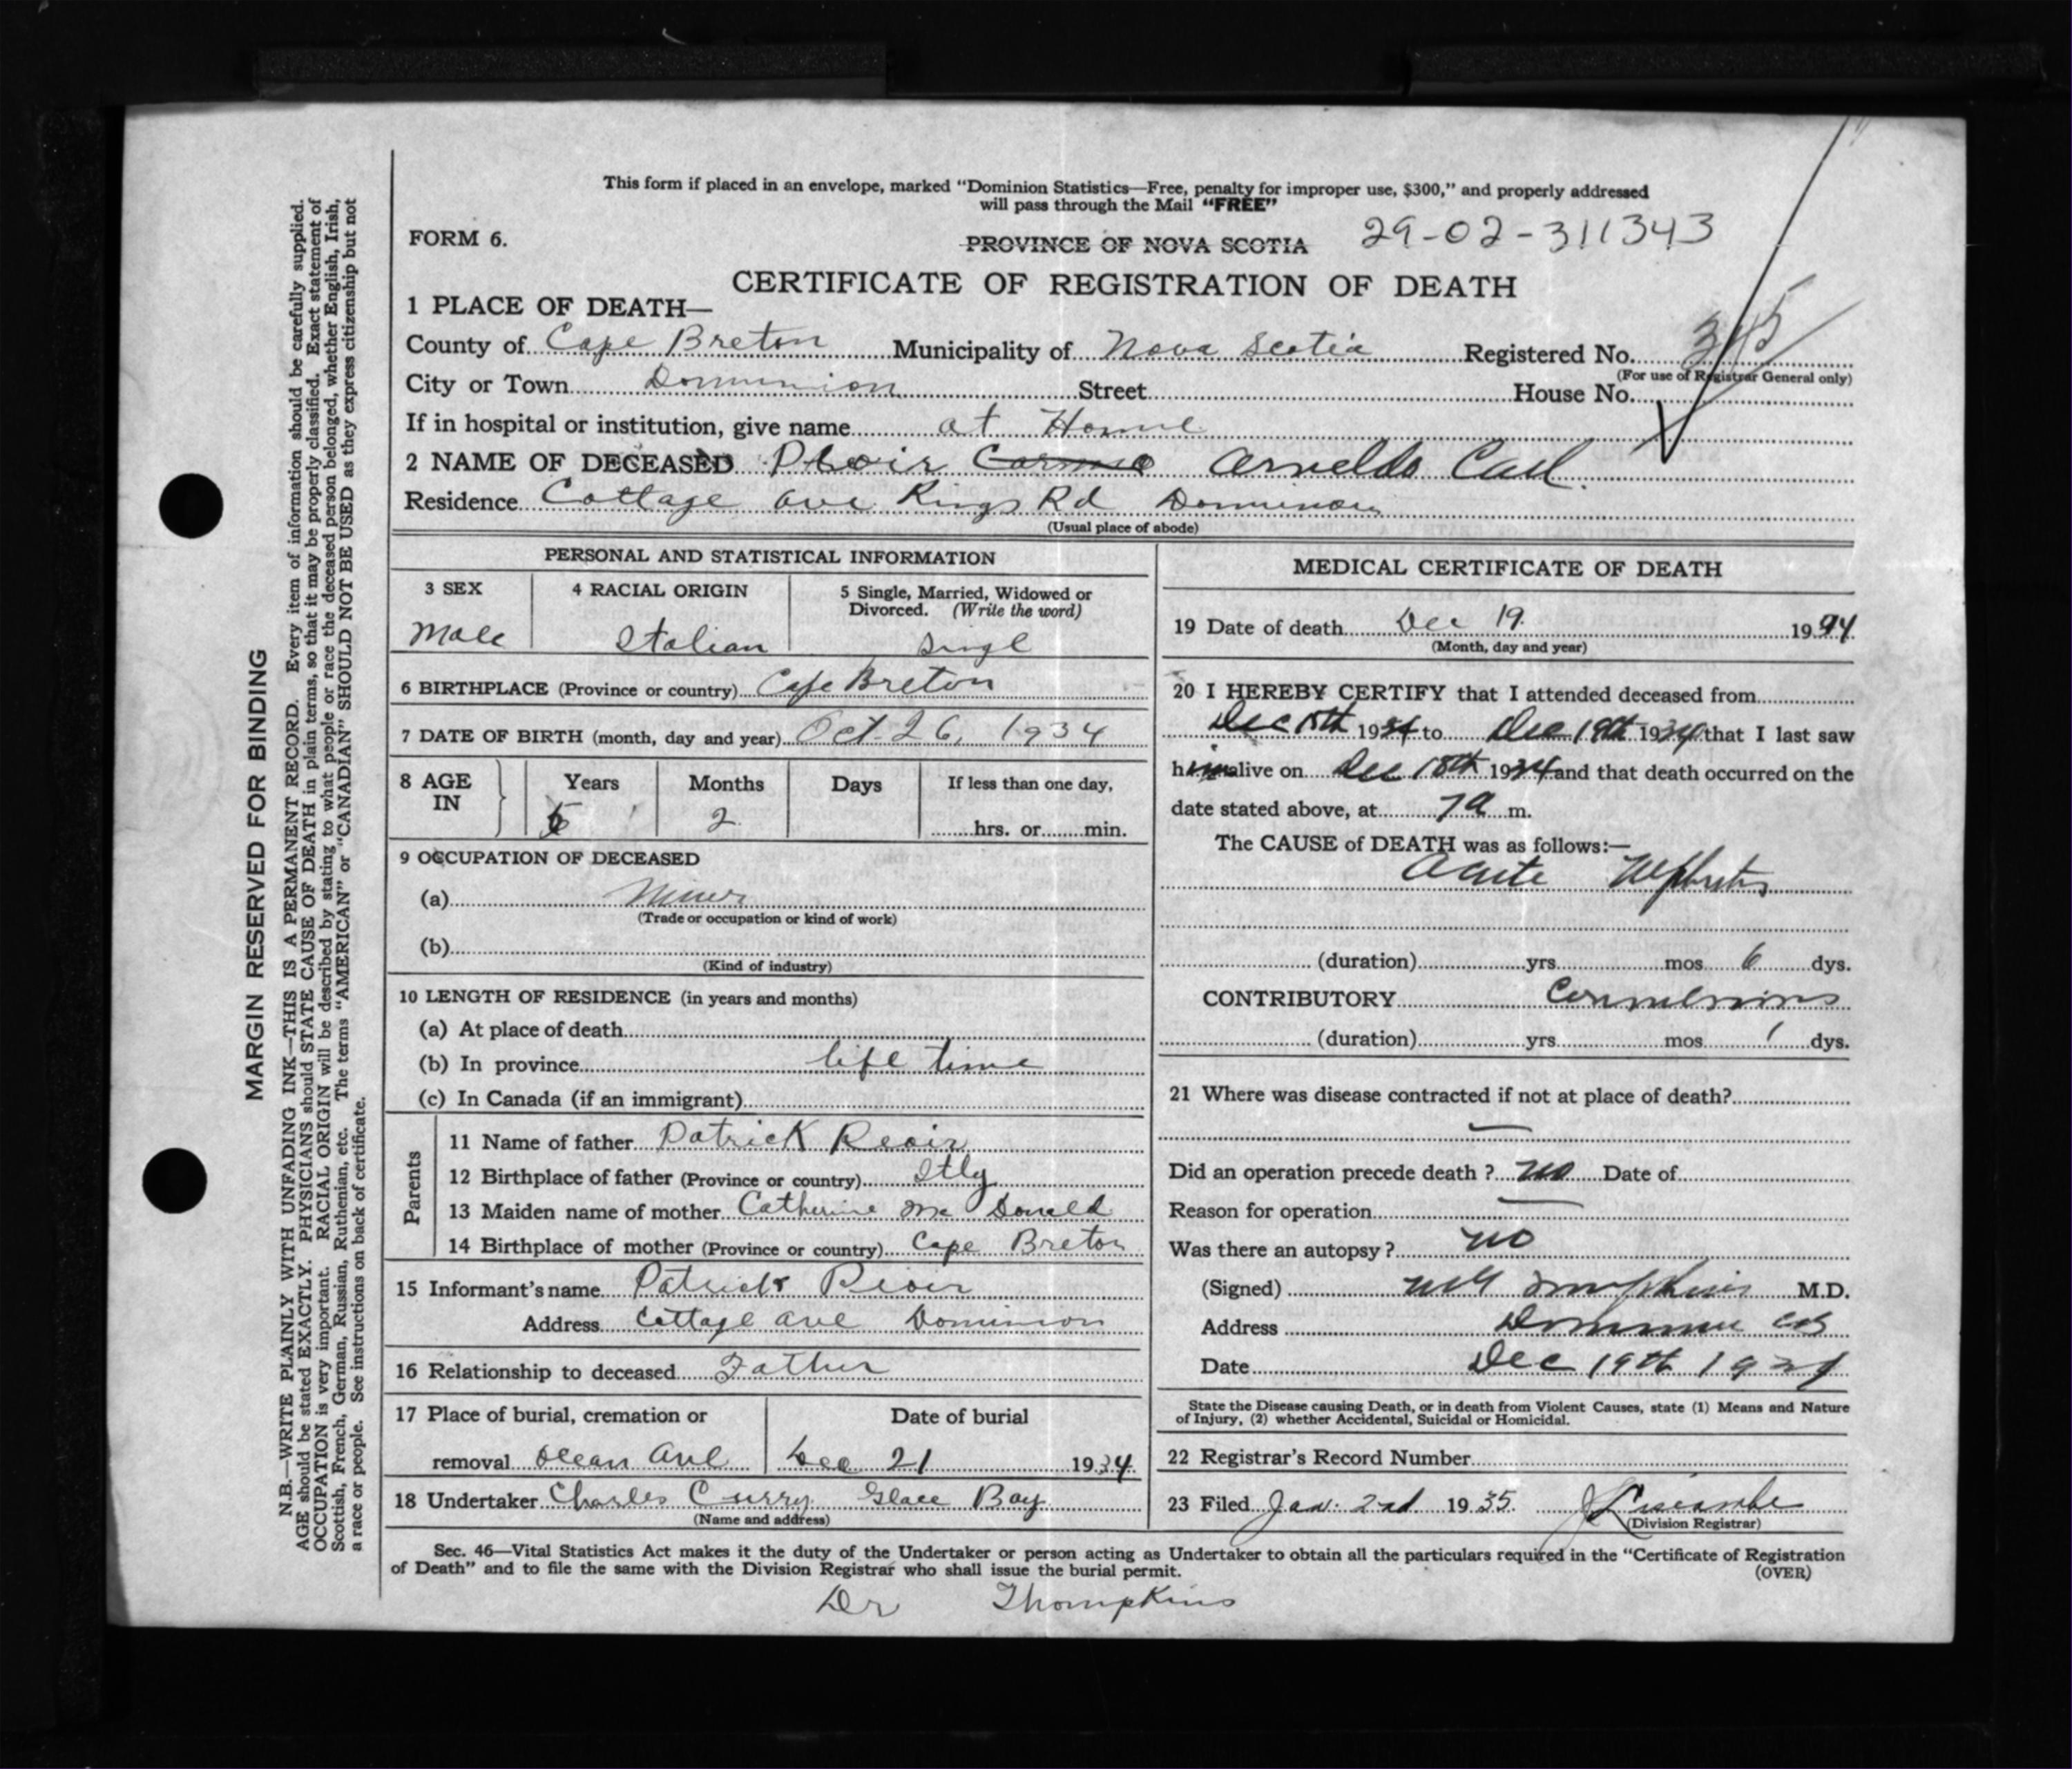 This form if placed in an envelope, marked "Dominion Statistics—Free, penalty for improper use, $300," and properly addressed
will pass through the Mail "FREE"
FORM 6.
PROVINCE OF NOVA SCOTIA 29-02-311343
CERTIFICATE OF REGISTRATION OF DEATH
1 PLACE OF DEATH—
County of Cape Breton Municipality of Nova Scotia Registered No. 345
(For use of Registrar General only)
City or Town Dominion Street House No.
If in hospital or institution, give name at Home
2 NAME OF DECEASED Arneldo Carl
Residence Cottage ave Kings Rd Dominion
(Usual place of abode)
PERSONAL AND STATISTICAL INFORMATION
3 SEX 4 RACIAL ORIGIN 5 Single, Married, Widowed or
Divorced. (Write the word)
Male Italian Singl
6 BIRTHPLACE (Province or country) Cape Breton
7 DATE OF BIRTH (month, day and year) Oct. 26, 1934
8 AGE IN Years Months Days If less than one day,
2 hrs. or min.
9 OCCUPATION OF DECEASED
(a) Miner
(Trade or occupation or kind of work)
(b)
(Kind of industry)
10 LENGTH OF RESIDENCE (in years and months)
(a) At place of death
(b) In province life time
(c) In Canada (if an immigrant)
Parents
11 Name of father Patrick
12 Birthplace of father (Province or country) Itly
13 Maiden name of mother Catherine Mc Donald
14 Birthplace of mother (Province or country) Cape Breton
15 Informant's name Patrick
Address Cottage ave Dominion
16 Relationship to deceased Father
17 Place of burial, cremation or Date of burial
removal Ocean Ave Dec 21 1934
18 Undertaker Charles Curry Glace Bay
(Name and address)
MEDICAL CERTIFICATE OF DEATH
19 Date of death Dec 19 1934
(Month, day and year)
20 I HEREBY CERTIFY that I attended deceased from
Dec 18th 1934 to Dec 19th 1934 that I last saw
him alive on Dec 18th 1934 and that death occurred on the
date stated above, at 7 a m.
The CAUSE of DEATH was as follows:—
Acute Nephritis
(duration) yrs mos 6 dys.
CONTRIBUTORY Convulsions
(duration) yrs mos 1 dys.
21 Where was disease contracted if not at place of death? —
Did an operation precede death ? no Date of
Reason for operation —
Was there an autopsy ? no
(Signed) Tompkins M.D.
Address Dominion CB
Date Dec 19th 1934
State the Disease causing Death, or in death from Violent Causes, state (1) Means and Nature
of Injury, (2) whether Accidental, Suicidal or Homicidal.
22 Registrar's Record Number
23 Filed Jan. 2nd 1935. J Liscombe
(Division Registrar)
Sec. 46—Vital Statistics Act makes it the duty of the Undertaker or person acting as Undertaker to obtain all the particulars required in the "Certificate of Registration
of Death" and to file the same with the Division Registrar who shall issue the burial permit. (OVER)
Dr Thompkins
MARGIN RESERVED FOR BINDING
N.B.—WRITE PLAINLY WITH UNFADING INK—THIS IS A PERMANENT RECORD. Every item of information should be carefully supplied.
AGE should be stated EXACTLY. PHYSICIANS should STATE CAUSE OF DEATH in plain terms, so that it may be properly classified. Exact statement of
OCCUPATION is very important. RACIAL ORIGIN will be described by stating to what people or race the deceased person belonged, whether English, Irish,
Scottish, French, German, Russian, Ruthenian, etc. The terms "AMERICAN" or "CANADIAN" SHOULD NOT BE USED as they express citizenship but not
a race or people. See instructions on back of certificate.